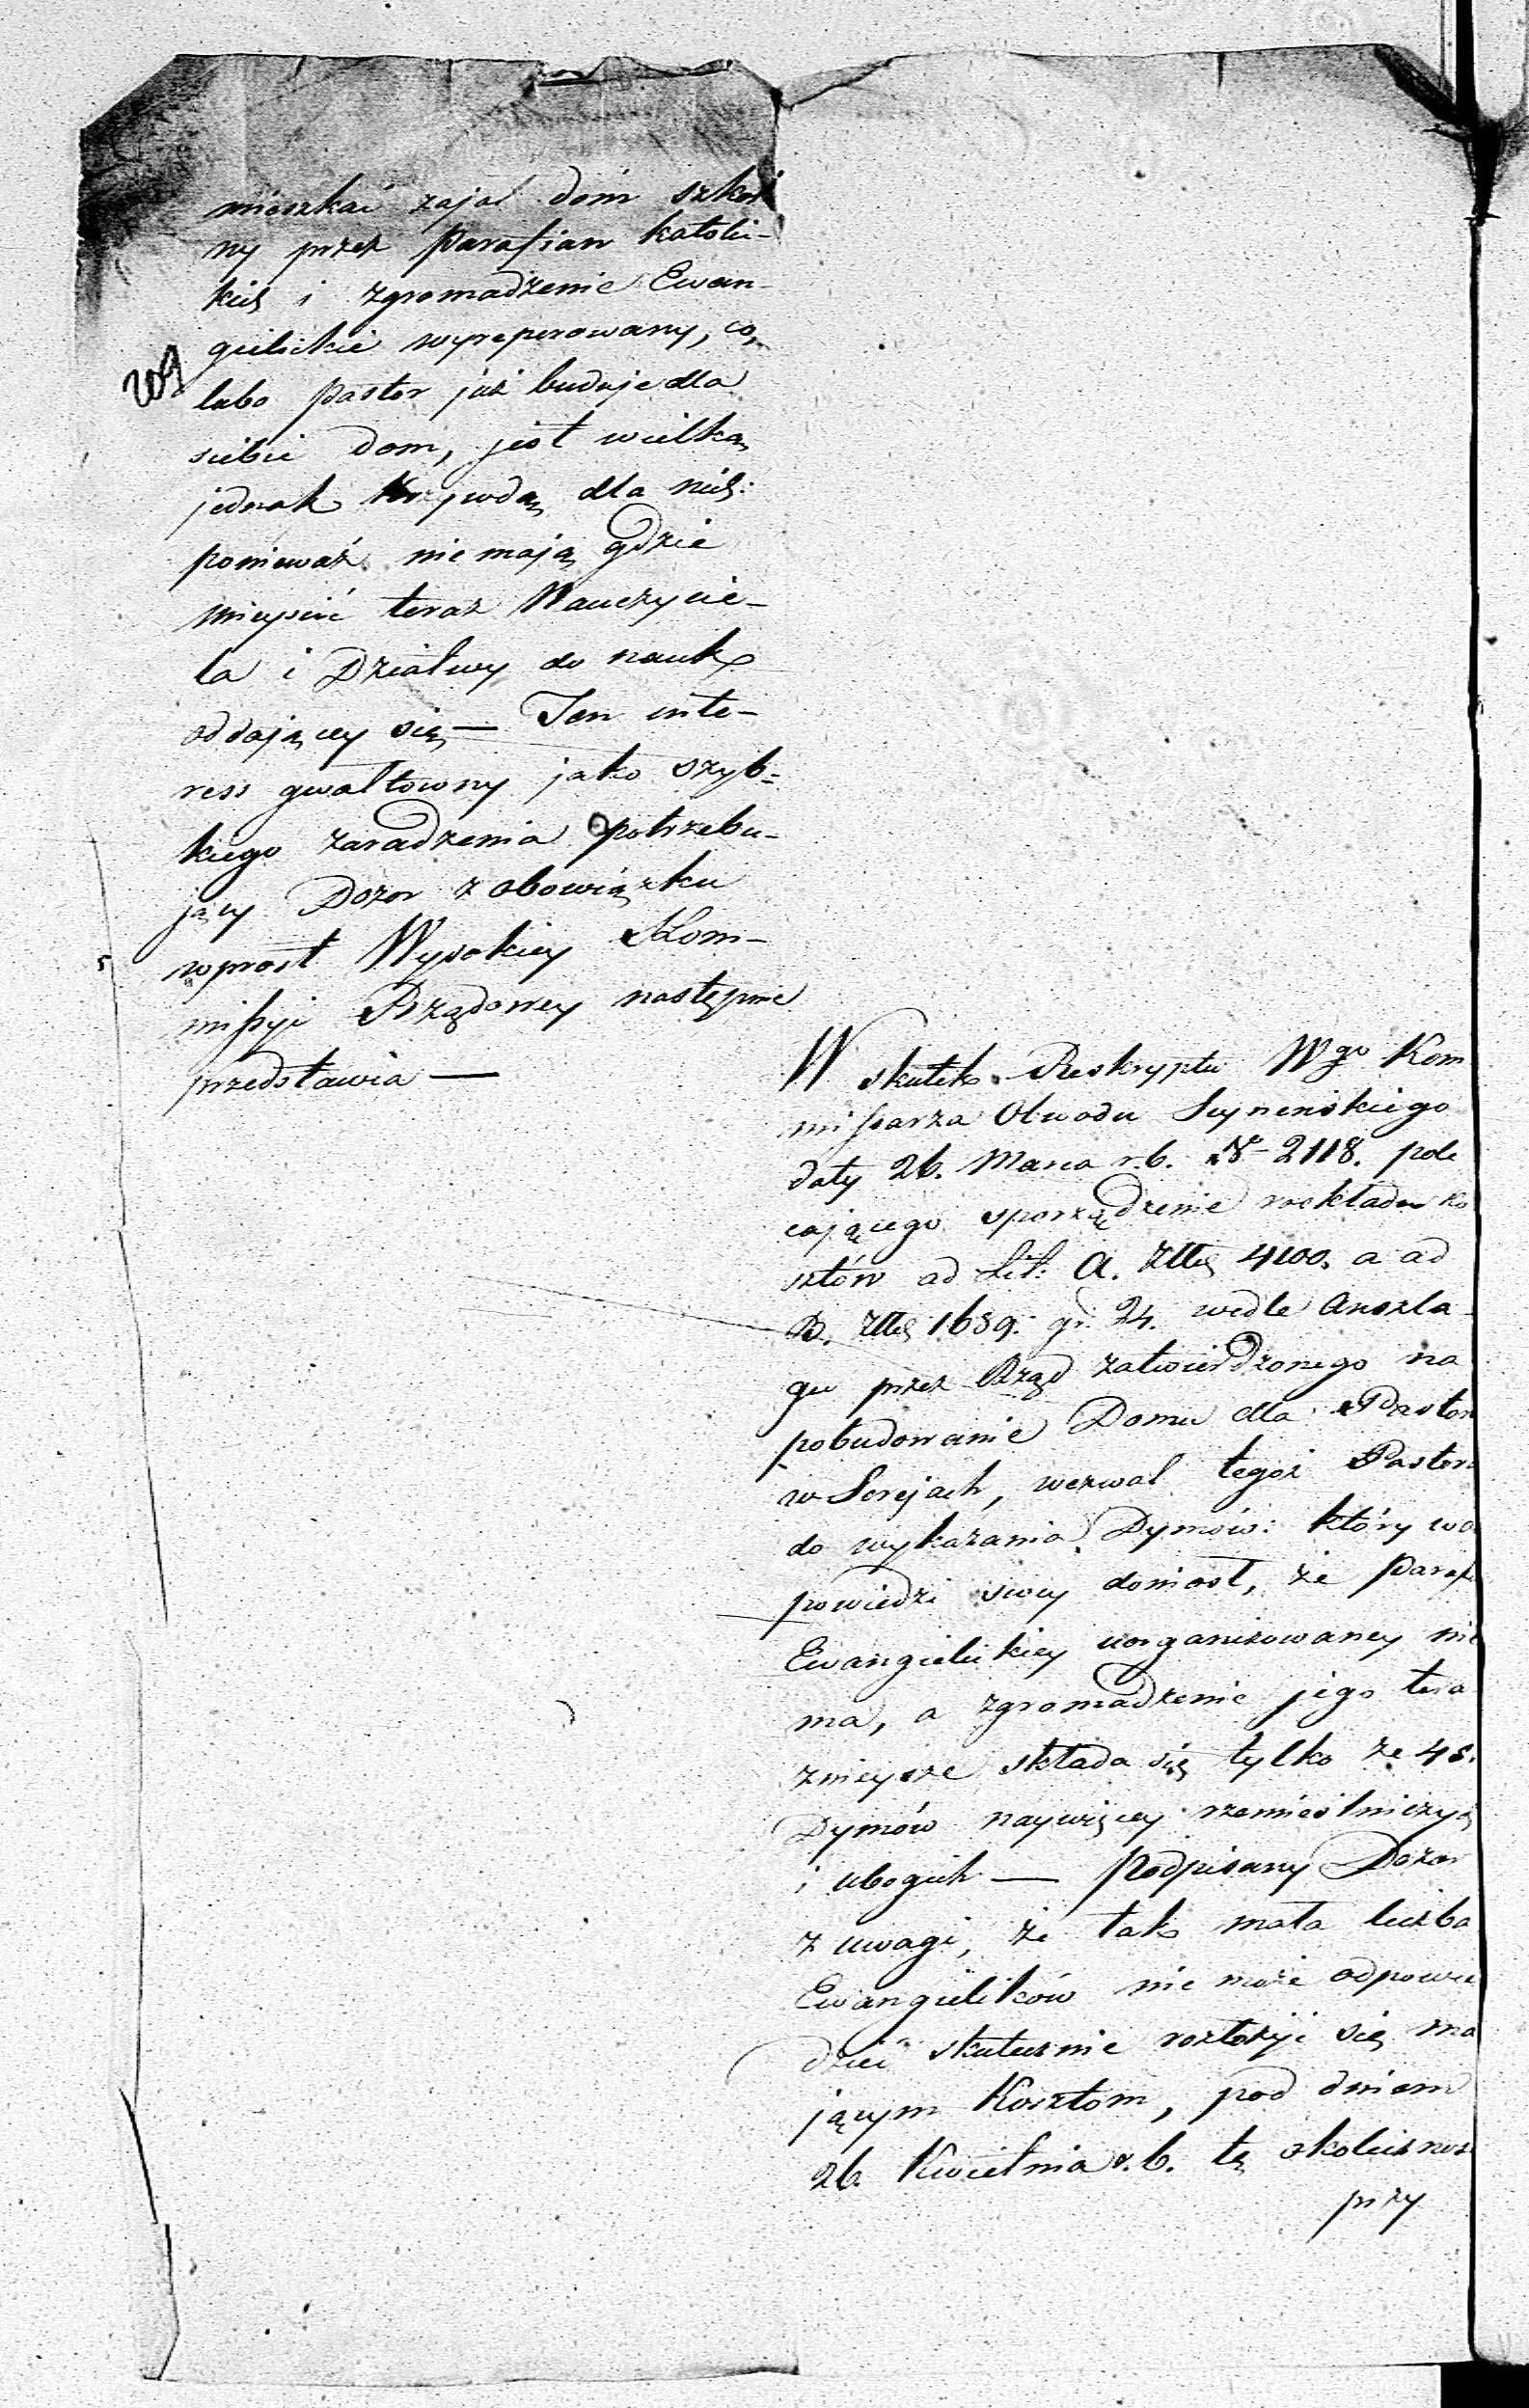 mieszkać zajął dom szkol
ny przez Parafian katoli-
kich i zgromadzenie Ewan-
gielickie wyreperowany, co,
209
lubo Pastor już buduje dla
siebie dom, jest wielką
jednak Krzywdą dla nich:
ponieważ nie mają gdzie
mieyscić teraz Nauczycie-
la i Dziatwy do nauk
oddaiącey się — Ten inte-
ress gwałtowny jako szyb-
kiego zaradzenia potrzebu-
jący Dozor z obowiązku
wprost Wysokiey Kom-
missyi Rządowey następnie
przedstawia —
W skutek Reskryptu Wgo Kom
missarza Obwodu Seynenskiego
daty 26. Marca r.b. No 2118. pole
cającego sporządzenie rozkładu ko
sztów ad Lit: A. Złłch 4100. a ad
B. Złłch 1659. gr. 24. wedle Anszla-
gu przez Rząd zatwierdzonego na
pobudowanie Domu dla Pastora
w Serejach, wezwał tegoż Pastora
do wykazania Dymów: który w o
powiedzi swey doniosł, że Parafi
Ewangielickiey uorganizowaney nie
ma, a zgromadzenie jego tera
znieysze składa się tylko ze 48.
Dymów naywięcey rzemieślniczych
i ubogich — Podpisany Dozor
z uwagi, że tak mała liczba
Ewangielików nie może odpowie
dzieć skutecznie rozłożyć się ma
jącym Kosztom, pod dniem
26. Kwietnia r.b. tę okoliczność
przy